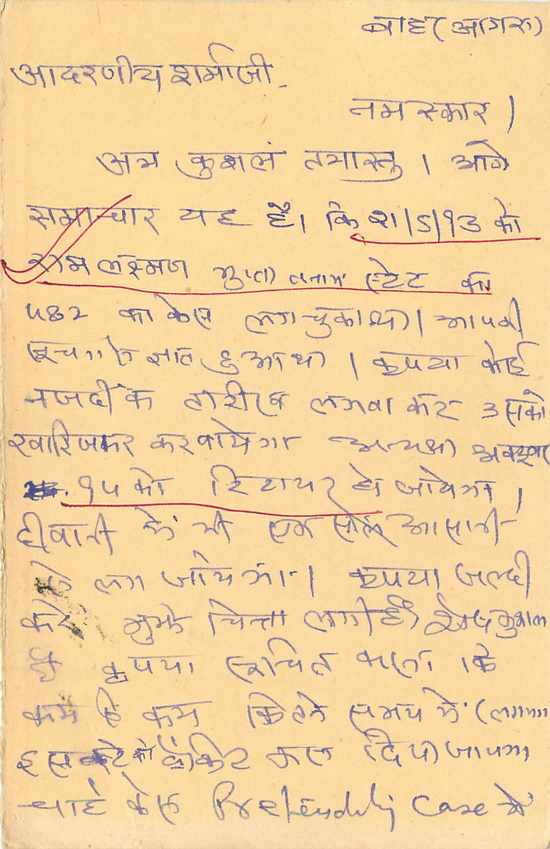 बाह (आगरा)
आदरणीय शर्माजी -
नमस्कार।
अत्र कुशलं तत्रास्तु। आगे
समाचार यह है। कि ९।५।९३ को
राम लक्ष्मण गुप्ता बनाम स्टेट का
482 का केस लग चुका था। आपकी
सूचना से ज्ञात हुआ था। कृपया कोई
नजदीक तारीख लगवा कर उसको
खारिज करवायेगा अन्यथा
९५ को रिटायर हो जायेगा।
दीवानी में भी एक आसानी
से लग जायेगा। कृपया जल्दी
करें मुझे चिन्ता लगी है। शेष कुशल
है कृपया सूचित करना कि
कम से कम कितने समय में (लगभग
इस को करा दिया जायेगा
चाहे केस Case में